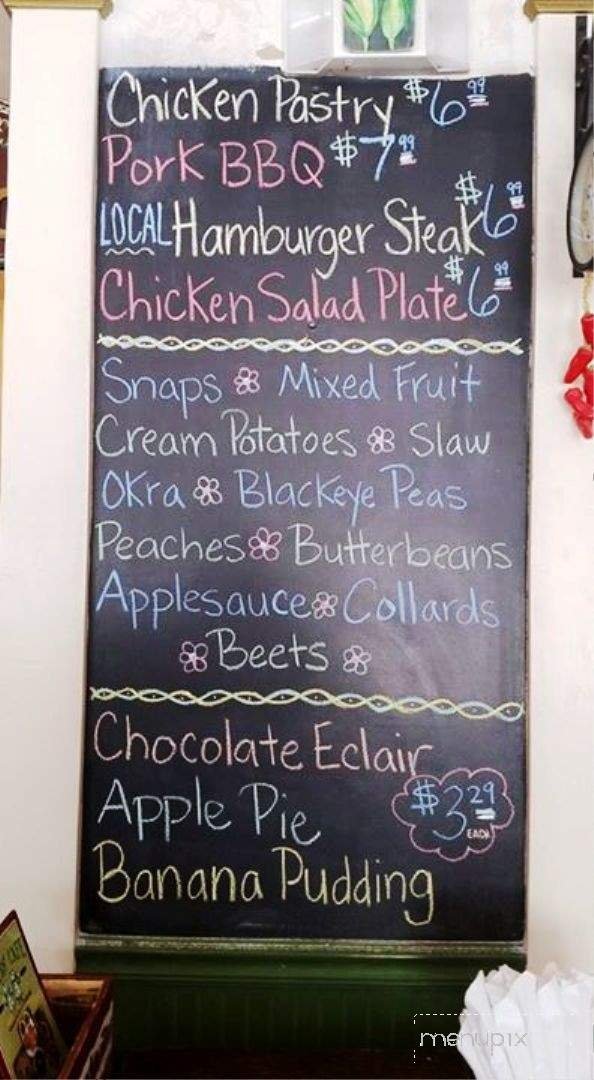 Chicken Pastry $6.99
Pork BBQ $7.99
LOCAL Hamburger Steak $6.99
Chicken Salad Plate $6.99
Snaps Mixed Fruit
Cream Potatoes Slaw
Okra Blackeye Peas
Peaches Butterbeans
Applesauce Collards
Beets
Chocolate Eclair
Apple Pie $3.29 EACH
Banana Pudding
menupix